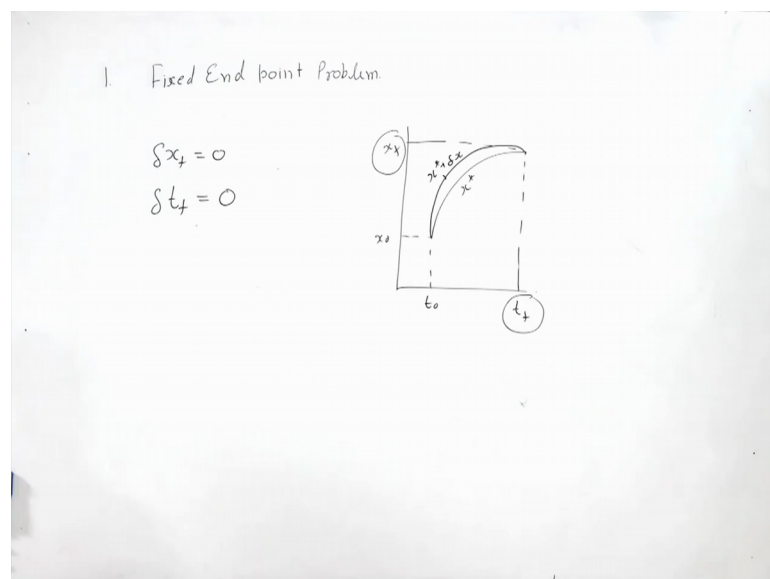 1. Fixed End point Problem
δx_f = 0
δt_f = 0
x_f
x*+δx
x*
x₀
t₀
t_f